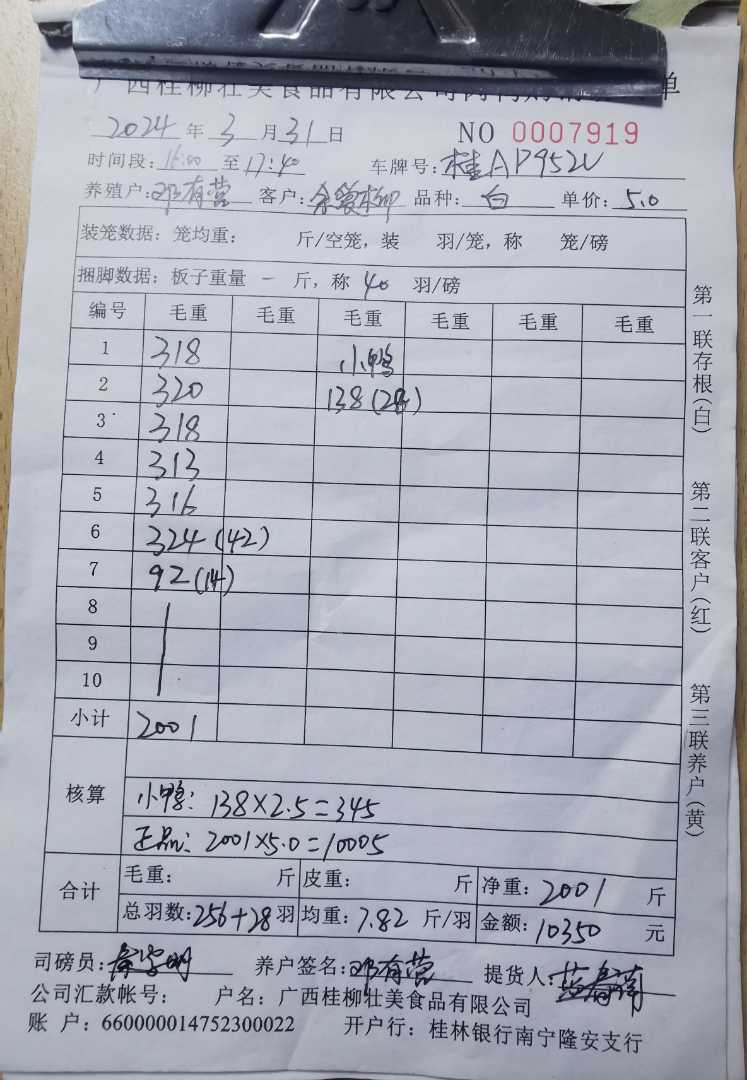 广西桂柳壮美食品有限公司
单
2024 年 3 月 31 日 NO 0007919
时间段: 16:00 至 17:40 车牌号: 桂AP952V
养殖户: 邓有营 客户: 品种: 白 单价: 5.0
装笼数据: 笼均重: 斤/空笼, 装 羽/笼, 称 笼/磅
捆脚数据: 板子重量 一 斤, 称 40 羽/磅
编号 毛重 毛重 毛重 毛重 毛重 毛重
1 318 小鸭
2 320 138(28)
3 318
4 313
5 316
6 324(42)
7 92(14)
8
9
10
小计 2001
核算
小鸭: 138×2.5=345
正品: 2001×5.0=10005
合计
毛重: 斤 皮重: 斤 净重: 2001 斤
总羽数: 256+28 羽 均重: 7.82 斤/羽 金额: 10350 元
司磅员: 养户签名: 邓有营 提货人:
公司汇款帐号: 户名: 广西桂柳壮美食品有限公司
账 户: 660000014752300022 开户行: 桂林银行南宁隆安支行
第一联存根(白)
第二联客户(红)
第三联养户(黄)